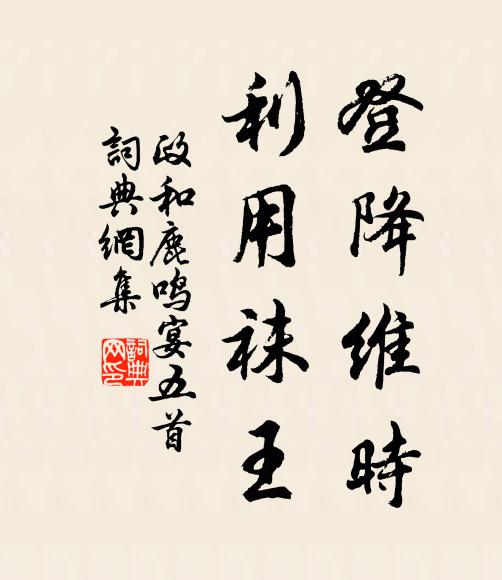 登降維時
利用袜王
政和鹿鳴宴五首
詞典網集
詞典
网印